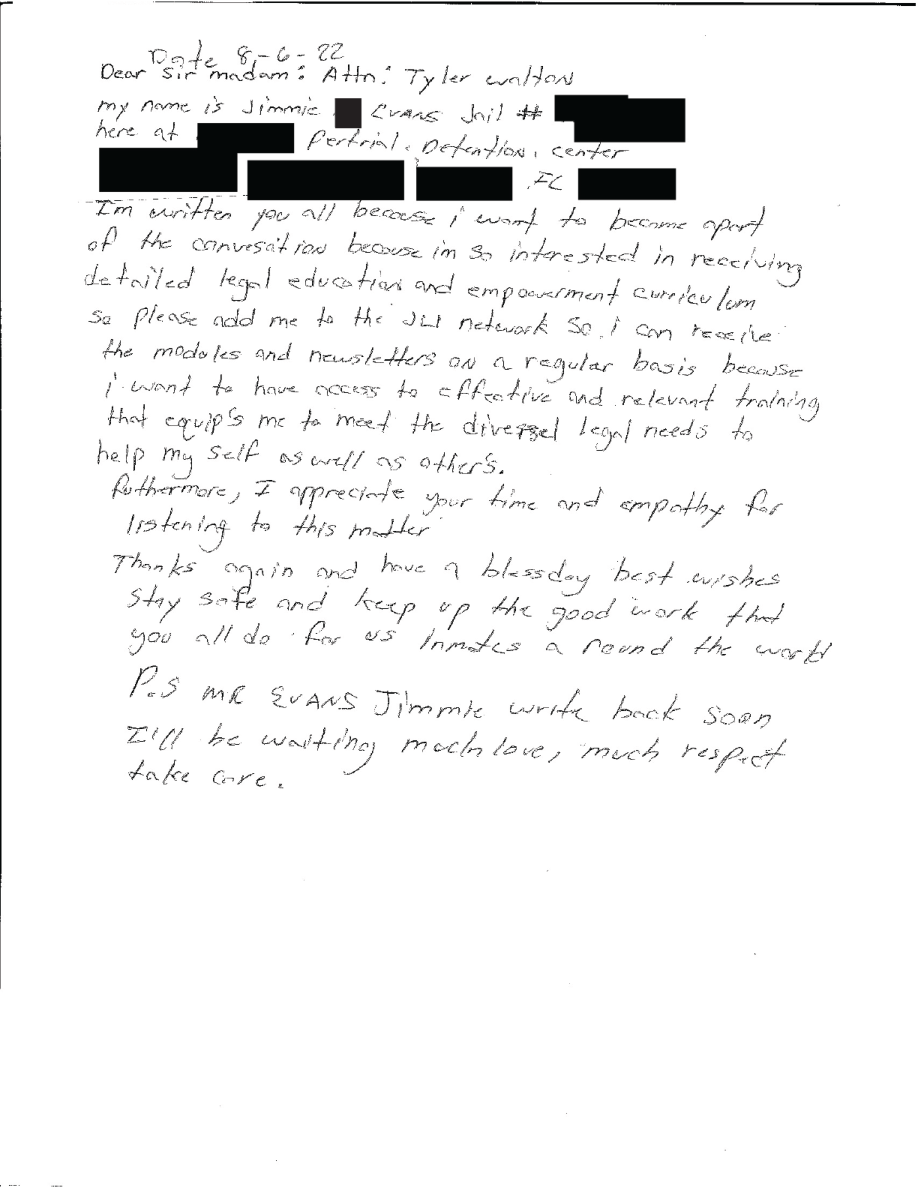 Date 8-6-22
Dear Sir madam: Attn: Tyler Walton
my name is Jimmie Evans Jail #
here at Pertrial. Detention. center
.FL
I'm written you all because i want to become apart
of the convesation because im so interested in receiving
detailed legal education and empowerment curriculum
so please add me to the JLI network so i can receive
the modules and newsletters on a regular basis because
i want to have access to effective and relevant training
that equip's me to meet the diversel legal needs to
help my self as well as other's.
Futhermore, I appreciate your time and empathy for
listening to this matter
Thanks again and have a blessday best wishes
stay safe and keep up the good work that
you all do for us Inmates a round the world
P.S MR EVANS Jimmie write back soon
I'll be waiting much love, much respect
take care.